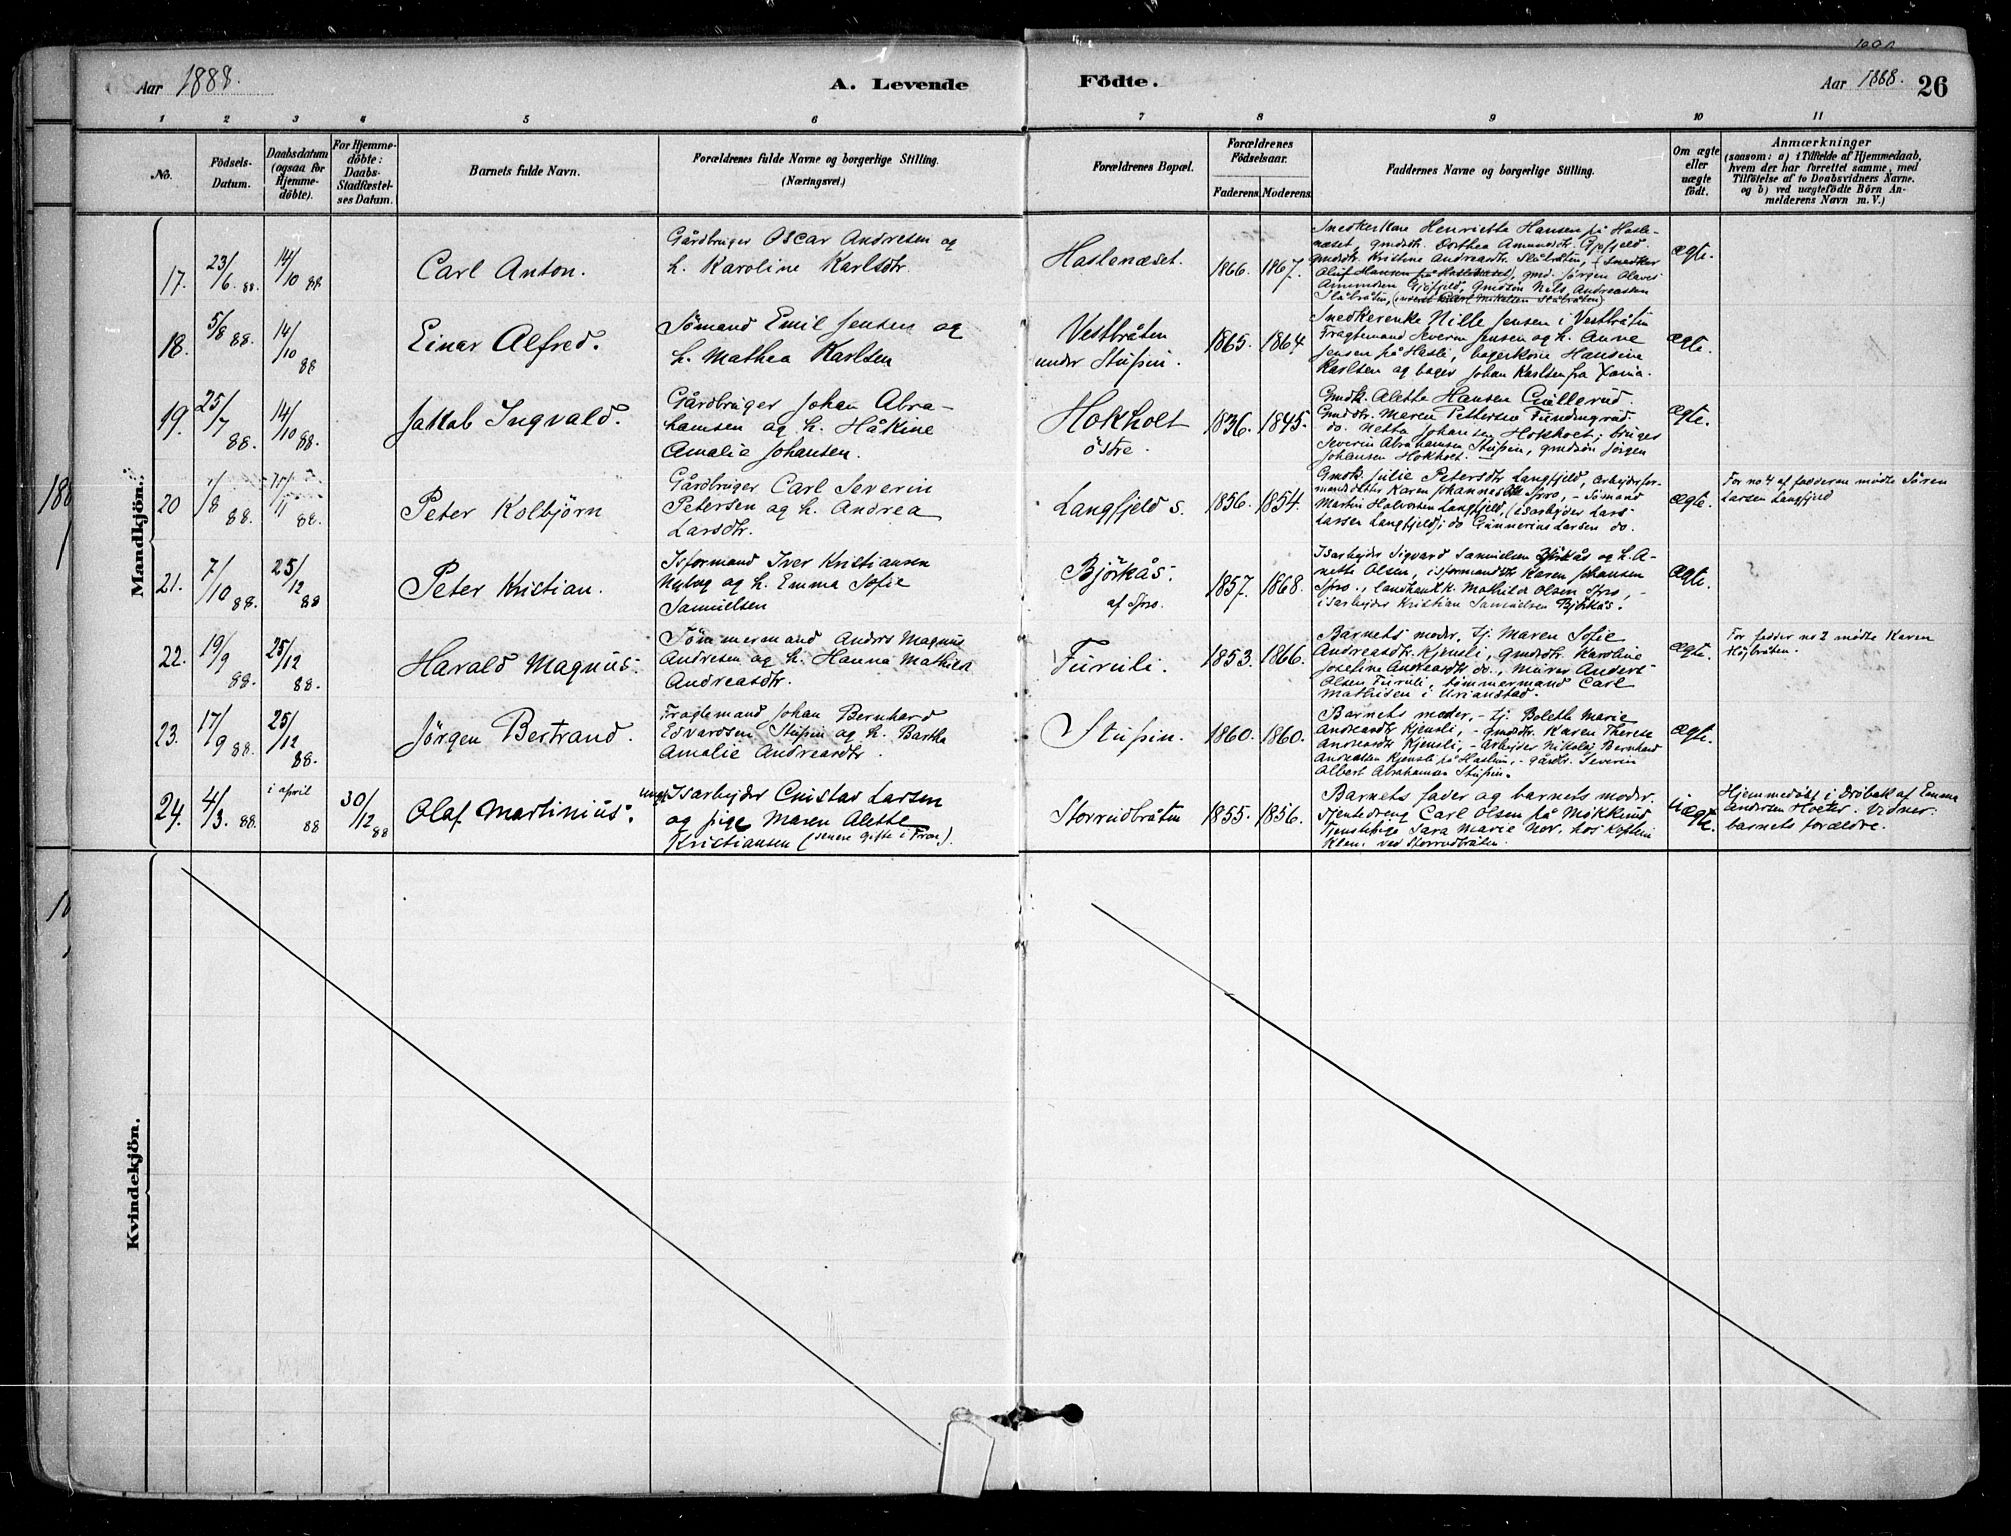 Aar 1888. A. Levende Födte. Aar 1888. 26
1 2 3 4 5 6 7 8 9 10 11
No.
Födsels-Datum.
Daabsdatum (ogsaa for Hjemme-döbte).
For Hjemme-döbte: Daabs-Stadfæstel-ses Datum.
Barnets fulde Navn.
Forældrenes fulde Navne og borgerlige Stilling.
(Næringsvei.)
Forældrenes Bopæl.
Forældrenes Födselsaar.
Faderens. Moderens.
Faddernes Navne og borgerlige Stilling.
Om ægte eller uægte födt.
Anmærkninger
(saasom: a) i Tilfælde af Hjemmedaab,
hvem der har forrettet samme, med
Tilföielse af to Daabsvidners Navne,
og b) ved uægtefödte Börn An-
melderens Navn m. V.)
Mandkjön.
17. 23/6 88. 14/10 88 Carl Anton.
Gårdbruger Oscar Andresen og
h. Karoline Karlsdtr.
Haslenæset. 1866. 1867.
Snedkerkone Henriette Hansen på Hasle-
næset, gmdsdtr. Dorthea Amundsdtr.
gmdsdtr. Kristine Andreasdtr. Slåbråten, (Snedker
Oluf Hansen på Haslenæset), gmd. Jörgen Olaves
Amundsen, gmdsön Nils Andreassen
Slåbråten,
ægte.
18. 5/8 88. 14/10 88 Einar Alfred.
Sömand Emil Jensen og
h. Mathea Karlsen
Vestbråten
under Stubin. 1865. 1864
Snedkerenke Nille Jensen i Vestbråtin
Fragtemand Severin Jensen og h. Anne
Jensen på Hasli, bagerkone Hansine
Karlsen og bager Johan Karlsen fra Xania.
ægte.
19. 25/7 88. 14/10 88. Jakob Ingvald.
Gårdbruger Johan Abra-
hamsen og h. Håkine
Amalie Johansen.
Hokholt
östre. 1836. 1845.
Gmdk. Alette Hansen Gullerud.
Gmdsdtr. Maren Pettersen
do. Netta Johansen Hokholt; bruger
Severin Abrahamsen Stubin, gmdsön Jörgen
Johansen Hokholt.
ægte.
20 /8 88. /11 88. Peter Kolbjörn
Gårdbruger Carl Severin
Petersen og h. Andrea
Larsdtr.
Langfjeld s. 1856. 1854.
Gmdk. Julie Petersdtr Langfjeld, arbejderfor-
mandsdatter Karen Johannesdtr Spro, - Sömand
Martin Halvorsen Langfjeld, (isarbejder Lars
Larsen Langfjeld), do Gunnerius Larsen do.
ægte.
For no 4 af fadderen mödte Sören
Larsen Langfjeld
21. 7/10 88. 25/12 88 Peter Kristian.
Isformand Iver Kristiansen
Nybug og h. Emma Sofie
Samuelsen
Björkås.
af Spro. 1857. 1868.
Isarbejder Sigvard Samuelsen Björkås og h. A-
nette Olsen, isformandsdtr Karen Johansen
Spro., Landhandk. Mathilda Olsen Spro, -
isarbejder Kristian Samuelsen Björkås.
ægte.
22. 19/9 88. 25/12 88. Harald Magnus.
Tömmermand Anders Magnus
Andresen og h. Hanna Mathea
Andreasdtr.
Furuli. 1853. 1866.
Barnets moder, tj. Maren Sofie
Andreasdtr. Kjensli, gmdsdtr. Karoline
Josefine Andreasdtr do., murer Anders
Olsen Furuli, tömmermand Carl
Mathisen i Urianstad.
ægte.
For fadder no 2 mödte Karen
Höjbråten.
23. 17/9 88. 25/12 88. Jörgen Bertrand.
Fragtemand Johan Bernhard
Edvardsen Stubin og h. Bertha
Amalie Andreasdtr.
Stubin. 1860. 1860.
Barnets moder, - tj. Bolette Marie
Andreasdtr Kjensli, - gmdsdtr. Karen Therese
Andreasdtr Kjensli, - arbejder Nikolaj Bernhard
Andreassen Kjensli på Haslum, - gårdbr. Severin
Albert Abrahamsen Stubin.
ægte.
24. 4/3 88. i april 88 30/12 88 Olaf Martinius.
ungk. Isarbejder Gustav Larsen
og pige Maren Alette
Kristiansen (senere gifte i Fron).
Storrudbråtin 1855. 1856.
Barnets fader og barnets moder.
Tjenstedreng Carl Olsen på Mökklend
Tjenstepige Sara Marie Nor. hos Kaptein
Klem. ved Storrudbråten.
uægte.
Hjemmedöbt i Dröbak af Emma
Andersen Holter. Vidner
barnets forældre.
Kvindekjön.